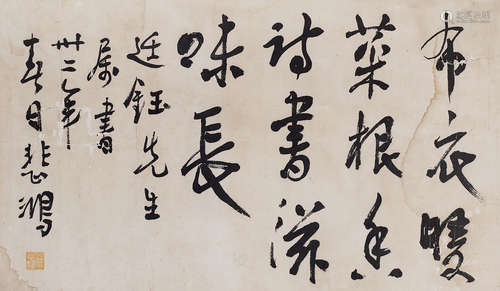 布衣暖
菜根香
詩書滋
味長
廷鈺先生
屬書
卅二年
春日悲鴻